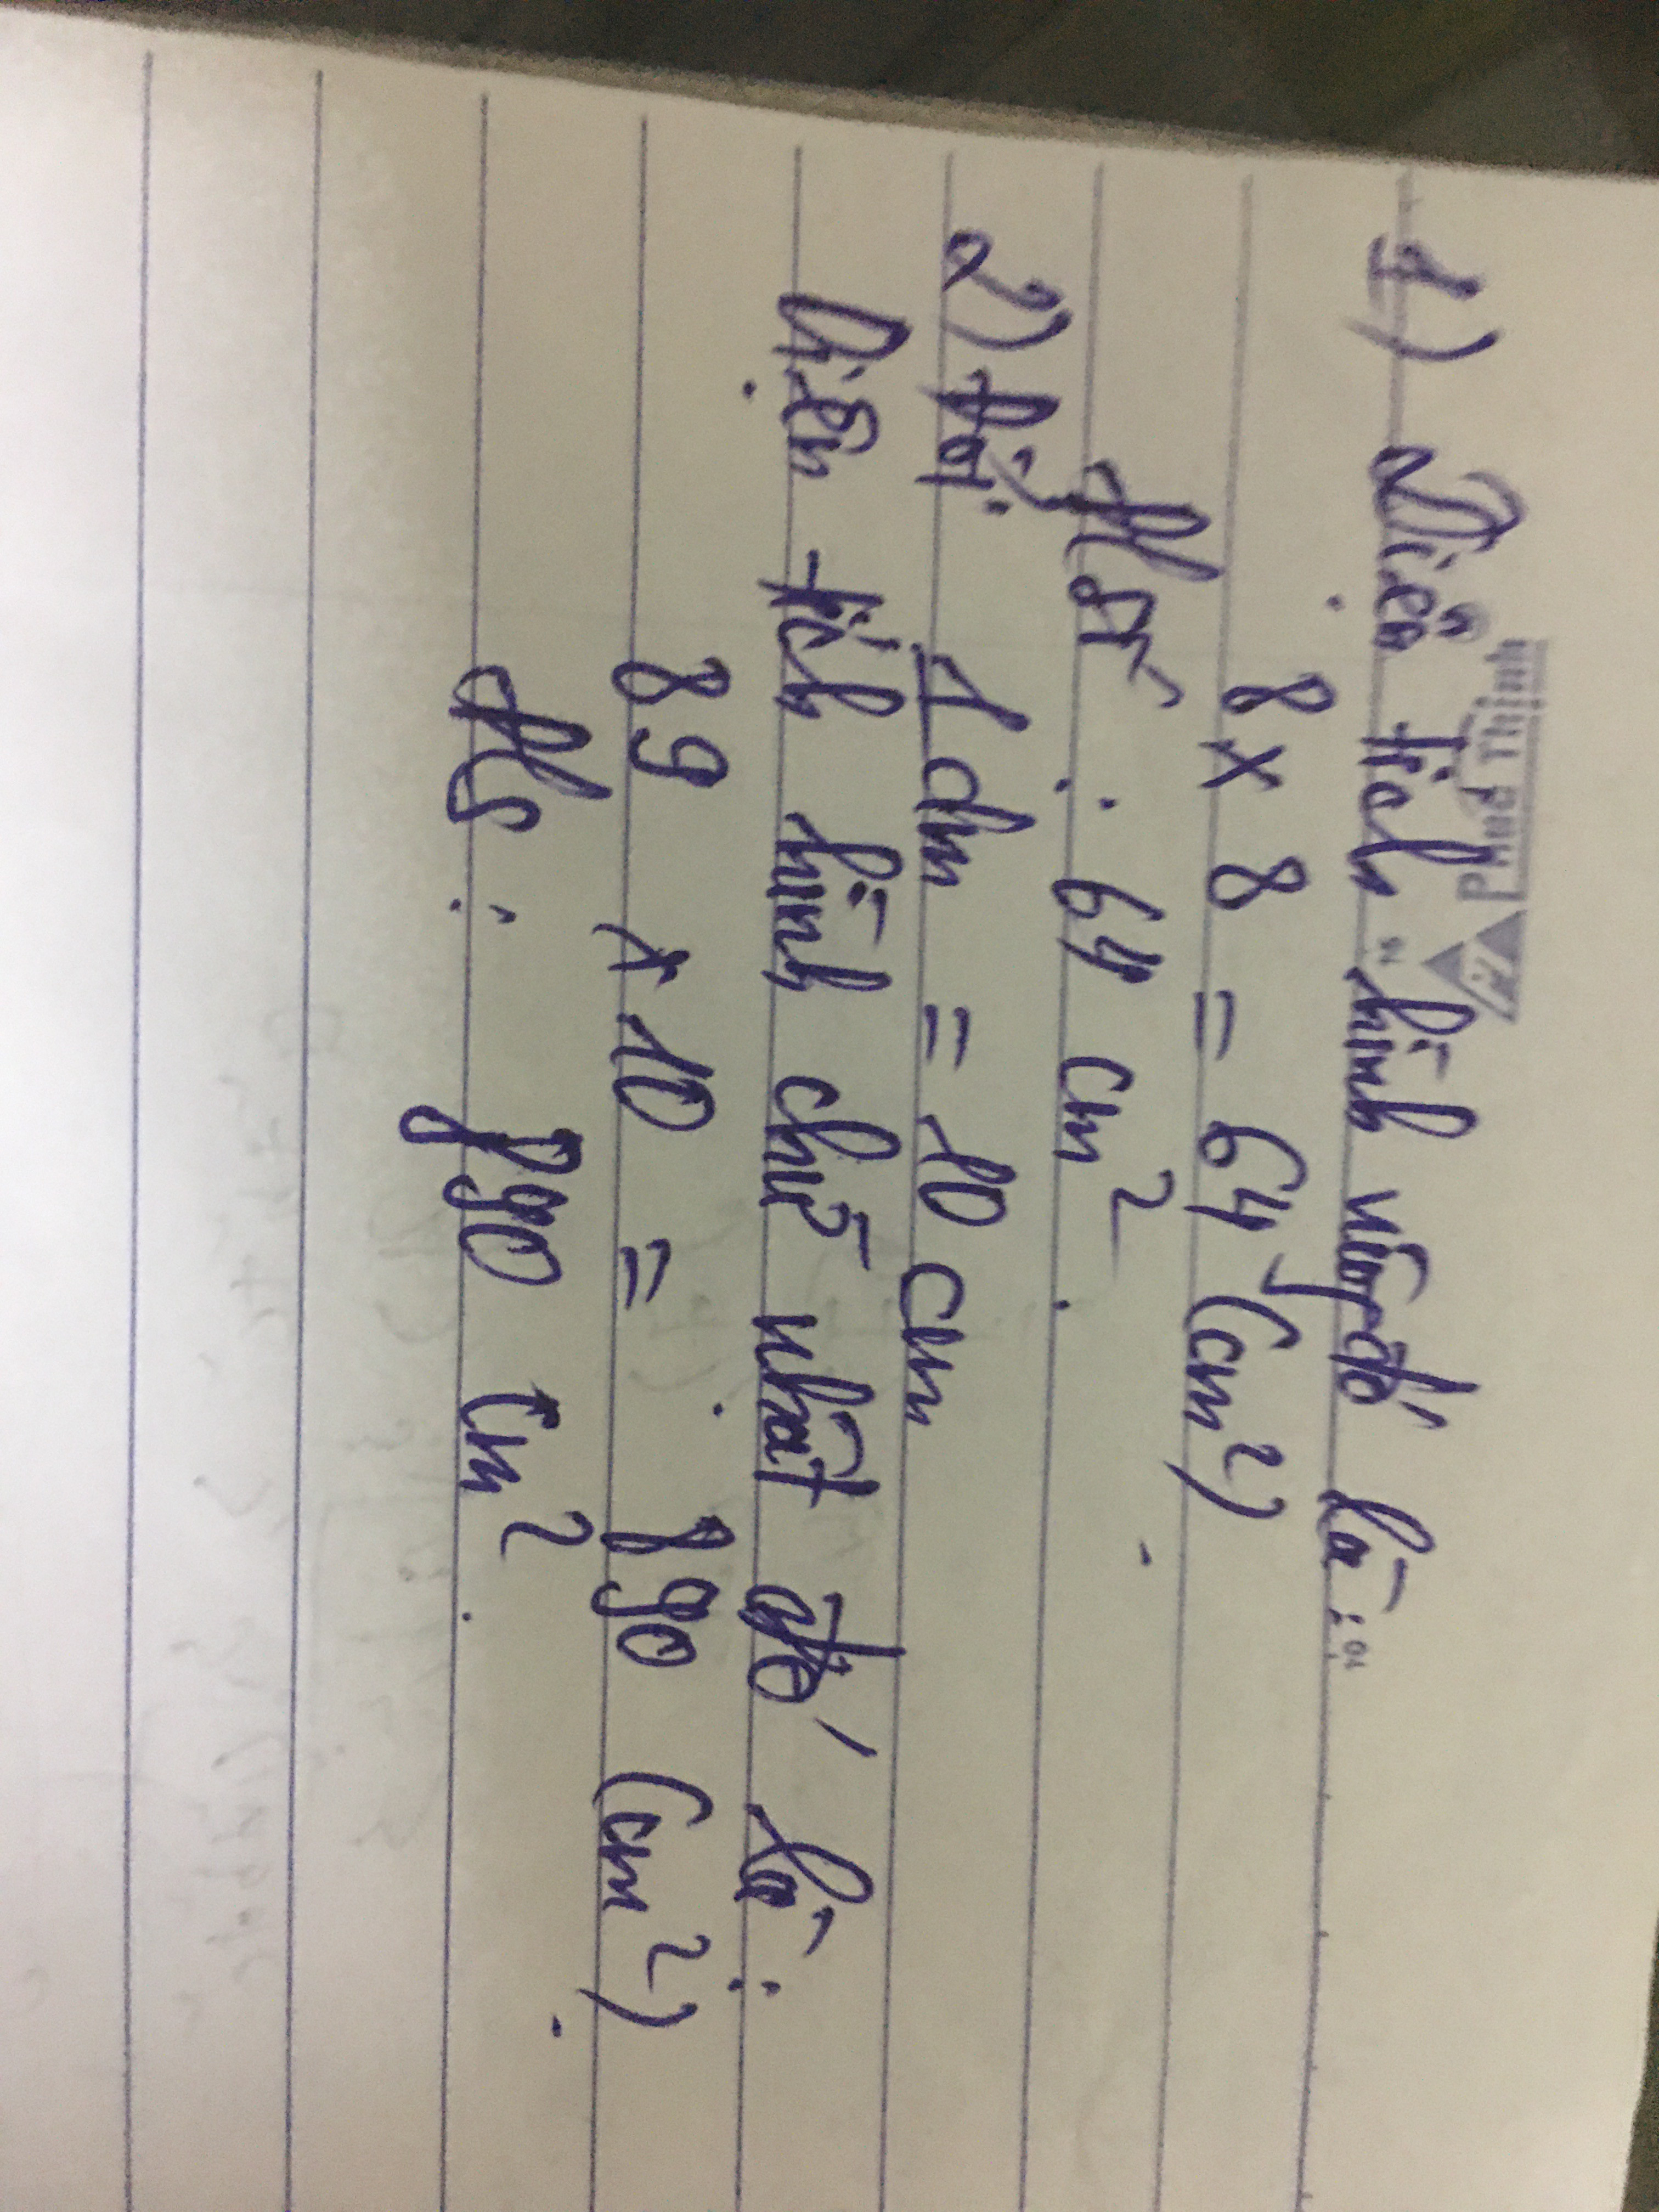 Phud Thịnh
1) Diện tích hình vuông đó là:
8 x 8 = 64 (cm²).
Đsố : 64 cm².
2) Đổi 1 dm = 10 cm
Diện tích hình chữ nhật đó là:
89 x 10 = 890 (cm²).
Đs : 890 cm².